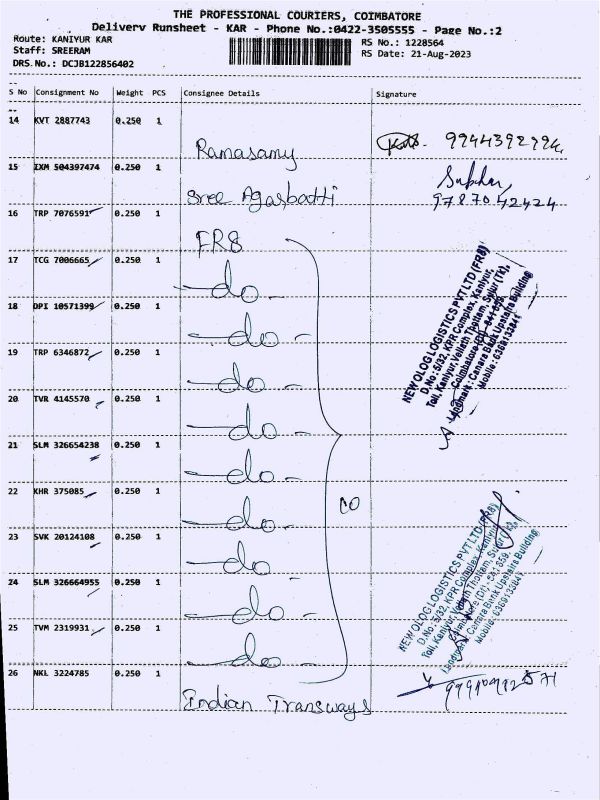 THE PROFESSIONAL COURIERS, COIMBATORE
Delivery Runsheet - KAR - Phone No.:0422-3505555 - Page No.:2
Route: KANIYUR KAR
RS No.: 1228564
Staff: SREERAM
RS Date: 21-Aug-2023
DRS.No.: DCJB122856402
S No Consignment No Weight PCS Consignee Details Signature
14 KVT 2887743 0.250 1
Ramasamy 9944392994
15 IXM 504397474 0.250 1
Sree Agarbatti
9787042424
16 TRP 7076591 0.250 1
FR8
17 TCG 7006665 0.250 1
-do-
18 DPI 10571399 0.250 1
-do-
19 TRP 6346872 0.250 1
-do-
20 TVR 4145570 0.250 1
-do-
21 SLM 326654238 0.250 1
-do-
22 KHR 375085 0.250 1
-do-
23 SVK 20124108 0.250 1
-do
24 SLM 326664955 0.250 1
-do-
25 TVM 2319931 0.250 1
-do-
26 NKL 3224785 0.250 1
Indian Transways
NEWOLOG LOGISTICS PVT LTD (FR8)
D.No: 5/32, KPR Complex, Kaniyur,
Toll, Kaniyur, Vellath Thottam, Sulur (Tk),
Coimbatore (Dt) - 641 659.
Landmark: Canara Bank Upstairs Building
Mobile: 6369133841
NEWOLOG LOGISTICS PVT LTD (FR8)
D.No: 5/32, KPR Complex, Kaniyur,
Toll, Kaniyur, Vellath Thottam, Sulur (Tk),
Coimbatore (Dt) - 641 659.
Landmark: Canara Bank Upstairs Building
Mobile: 6369133841